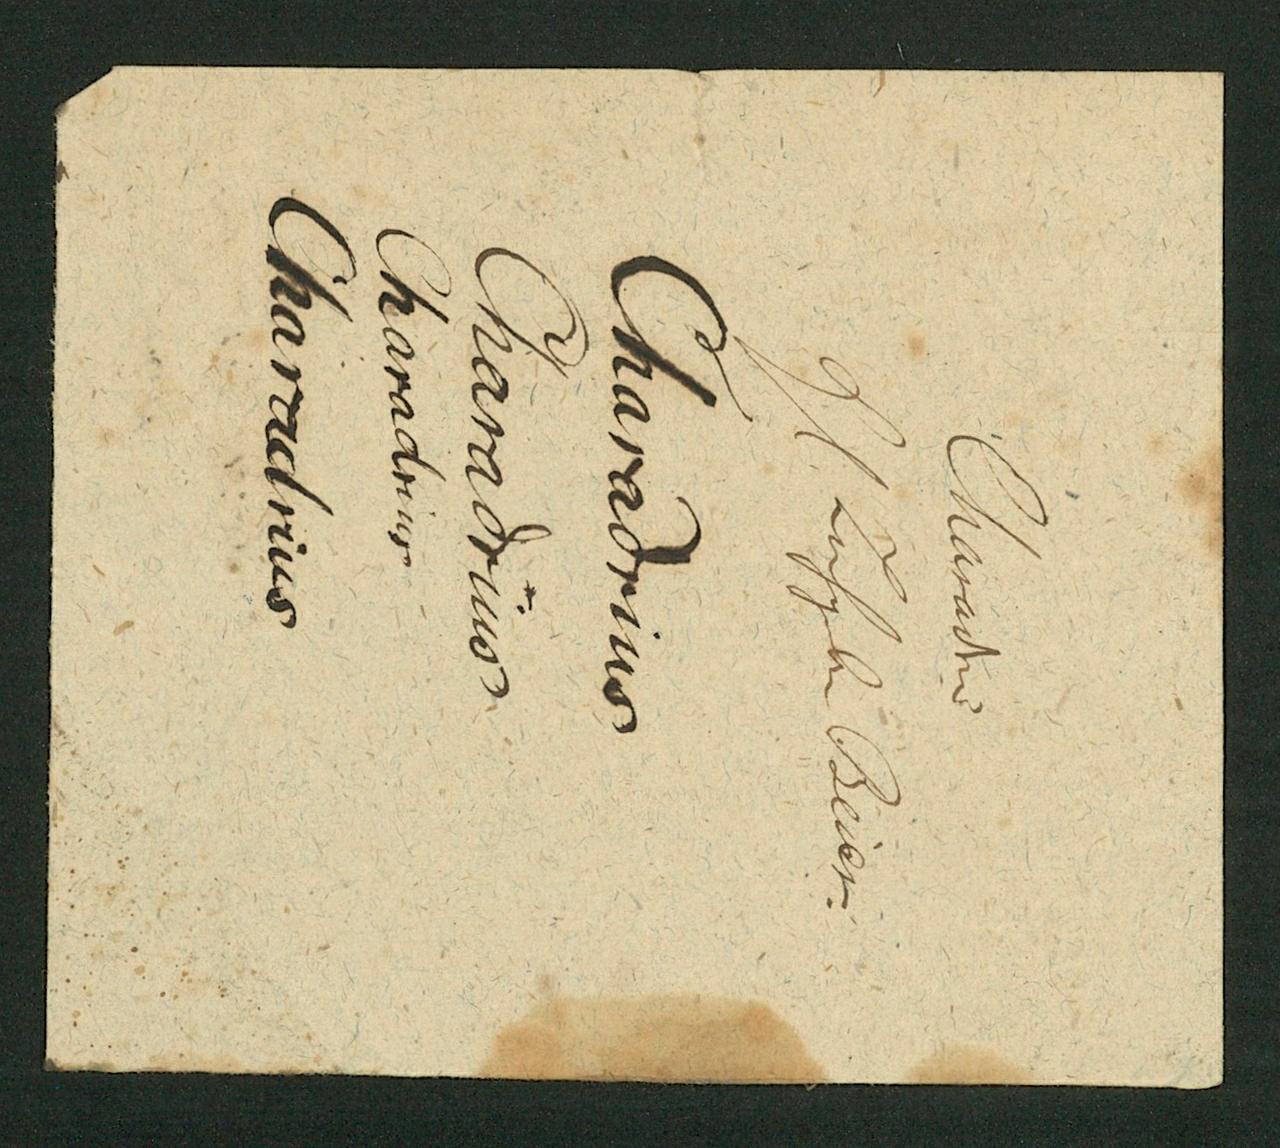 Charadri
Beier.
Charadrius
Charadrius
Charadrius
Charadrius